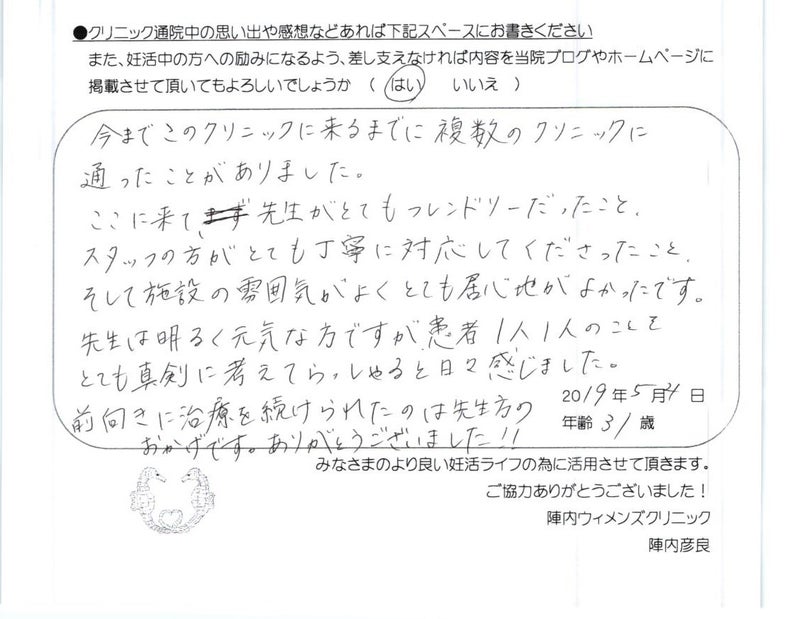 ●クリニック通院中の思い出や感想などあれば下記スペースにお書きください
また、妊活中の方への励みになるよう、差し支えなければ内容を当院ブログやホームページに
掲載させて頂いてもよろしいでしょうか ( はい いいえ )
今までこのクリニックに来るまでに複数のクリニックに
通ったことがありました。
ここに来て、まず先生がとてもフレンドリーだったこと、
スタッフの方がとても丁寧に対応してくださったこと、
そして施設の雰囲気がよくとても居心地がよかったです。
先生は明るく元気な方ですが患者1人1人のことを
とても真剣に考えてらっしゃると日々感じました。
前向きに治療を続けられたのは先生方の
おかげです。ありがとうございました!!
2019年5月 日
年齢 31 歳
みなさまのより良い妊活ライフの為に活用させて頂きます。
ご協力ありがとうございました!
陣内ウィメンズクリニック
陣内彦良